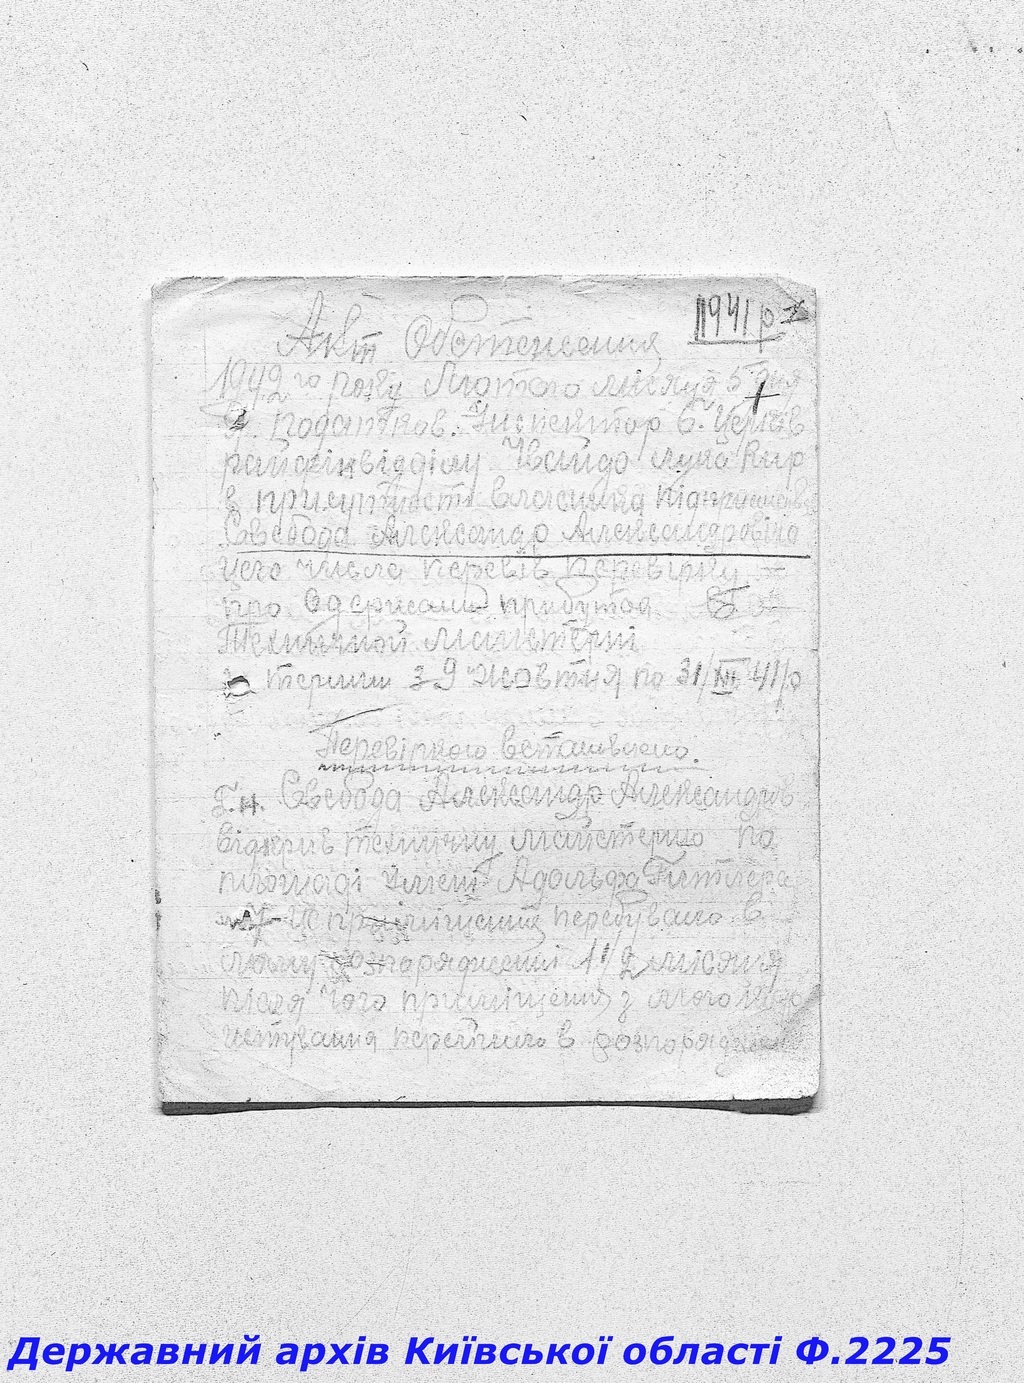 1941 р
Акт Обстеження
1942 го року Лютого місяця 5 дня
Я податков. Інспектор Б. Церков
райфінвідділу Івайдо Лука Кир
в присутності власника підприємов
Свобода Александр Александровіча
цего числа перевів перевірку
про одержання прибутка від
Технічной майстерні
термін з 9 жовтня по 31/XII 41 р
Перевіркою встановлено.
Г.н. Свобода Александр Александров
відкрив технічну майстерню на
площаді імені Адольфа Гитлера
перебувало в
розпорядженні 1 1/2 місяця
після чого приміщення з
в розпоряджен
Державний архів Київської області Ф.2225